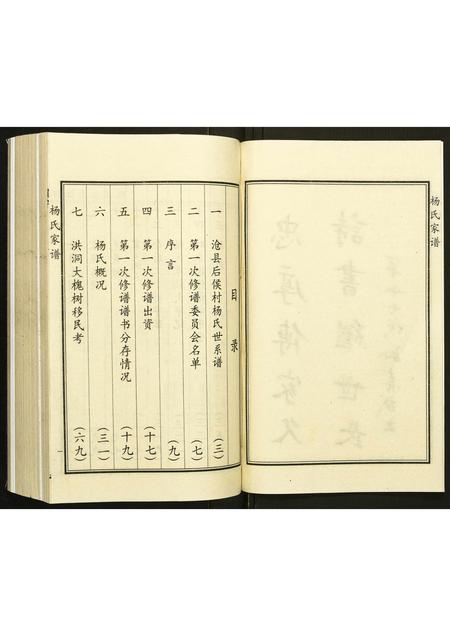 杨氏家谱
目录
一 沧县后侯村杨氏世系谱 (三)
二 第一次修谱委员会名单 (七)
三 序言 (九)
四 第一次修谱出资 (十七)
五 第一次修谱谱书分存情况 (十九)
六 杨氏概况 (三一)
七 洪洞大槐树移民考 (六九)
杨氏家谱